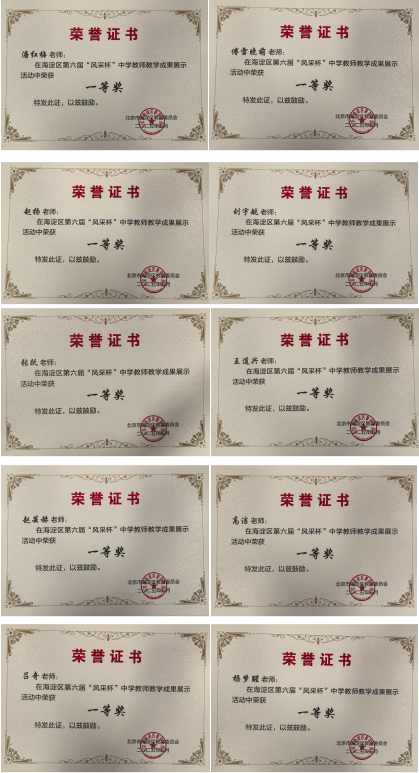 荣誉证书
潘红梅老师：
在海淀区第六届“风采杯”中学教师教学成果展示
活动中荣获
一等奖
特发此证，以兹鼓励。
荣誉证书
傅雷晓萌老师：
在海淀区第六届“风采杯”中学教师教学成果展示
活动中荣获
一等奖
特发此证，以兹鼓励。
荣誉证书
赵杨老师：
在海淀区第六届“风采杯”中学教师教学成果展示
活动中荣获
一等奖
特发此证，以兹鼓励。
荣誉证书
刘宇航老师：
在海淀区第六届“风采杯”中学教师教学成果展示
活动中荣获
一等奖
特发此证，以兹鼓励。
荣誉证书
张跃老师：
在海淀区第六届“风采杯”中学教师教学成果展示
活动中荣获
一等奖
特发此证，以兹鼓励。
荣誉证书
王道兴老师：
在海淀区第六届“风采杯”中学教师教学成果展示
活动中荣获
一等奖
特发此证，以兹鼓励。
荣誉证书
赵英赫老师：
在海淀区第六届“风采杯”中学教师教学成果展示
活动中荣获
一等奖
特发此证，以兹鼓励。
荣誉证书
高洁老师：
在海淀区第六届“风采杯”中学教师教学成果展示
活动中荣获
一等奖
特发此证，以兹鼓励。
荣誉证书
吕奇老师：
在海淀区第六届“风采杯”中学教师教学成果展示
活动中荣获
一等奖
特发此证，以兹鼓励。
荣誉证书
杨梦醒老师：
在海淀区第六届“风采杯”中学教师教学成果展示
活动中荣获
一等奖
特发此证，以兹鼓励。